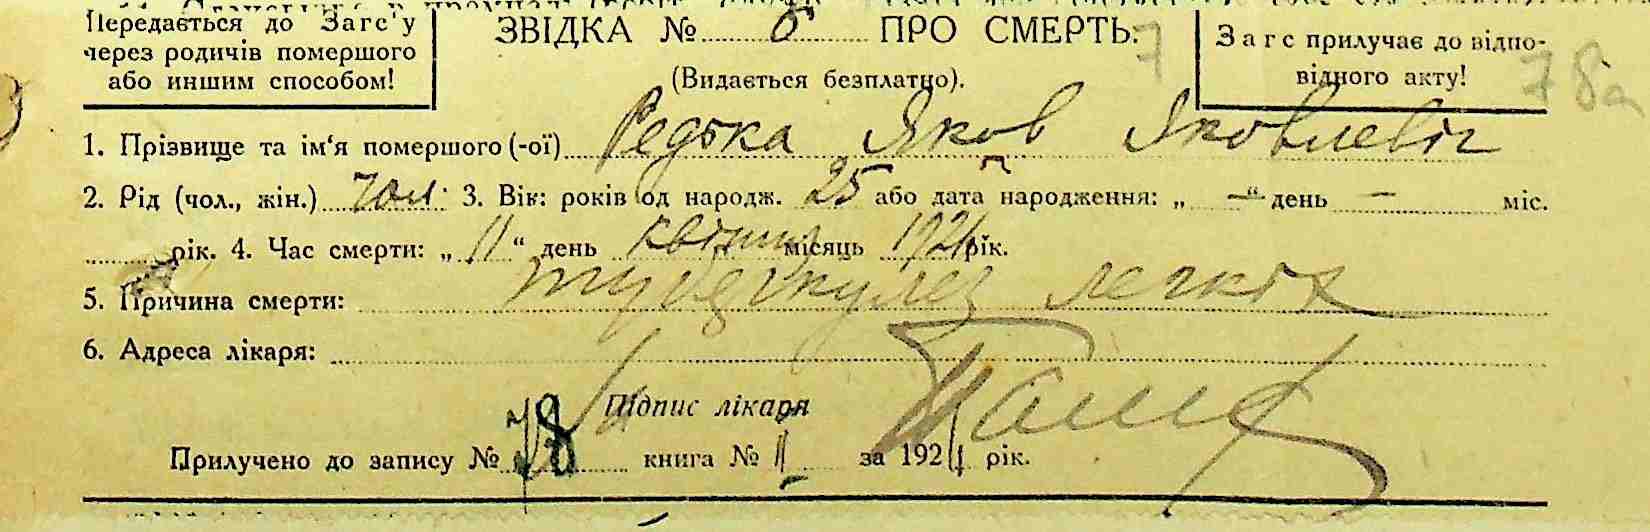 Передається до Загс'у
через родичів помершого
або иншим способом!
ЗВІДКА № 6 ПРО СМЕРТЬ.
(Видається безплатно).
7
Загс прилучає до відпо-
відного акту!
78а
1. Прізвище та ім'я помершого (-ої) Редька Яков Яковлевіч
2. Рід (чол., жін.) чол. 3. Вік: років од народж. 25 або дата народження: „ — “ день — міс.
рік. 4. Час смерти: „ 11 “ день квітня місяць 1924 рік.
5. Причина смерти: туберкулез легкіх
6. Адреса лікаря:
Підпис лікаря
Прилучено до запису № 78 книга № II за 1924 рік.